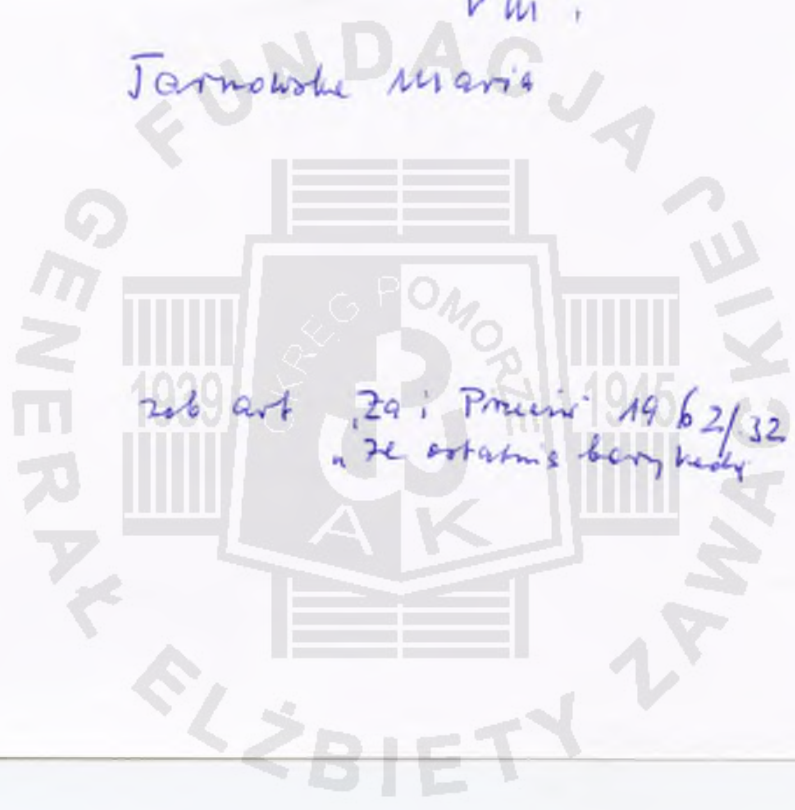 VM.
Tarnowska Maria
zob art „Za i Przeciw" 1962/32
„Za ostatnią barykadą
FUNDACJA GENERAŁ ELŻBIETY ZAWACKIEJ
OKRĘG POMORZE
1939 1945
AK